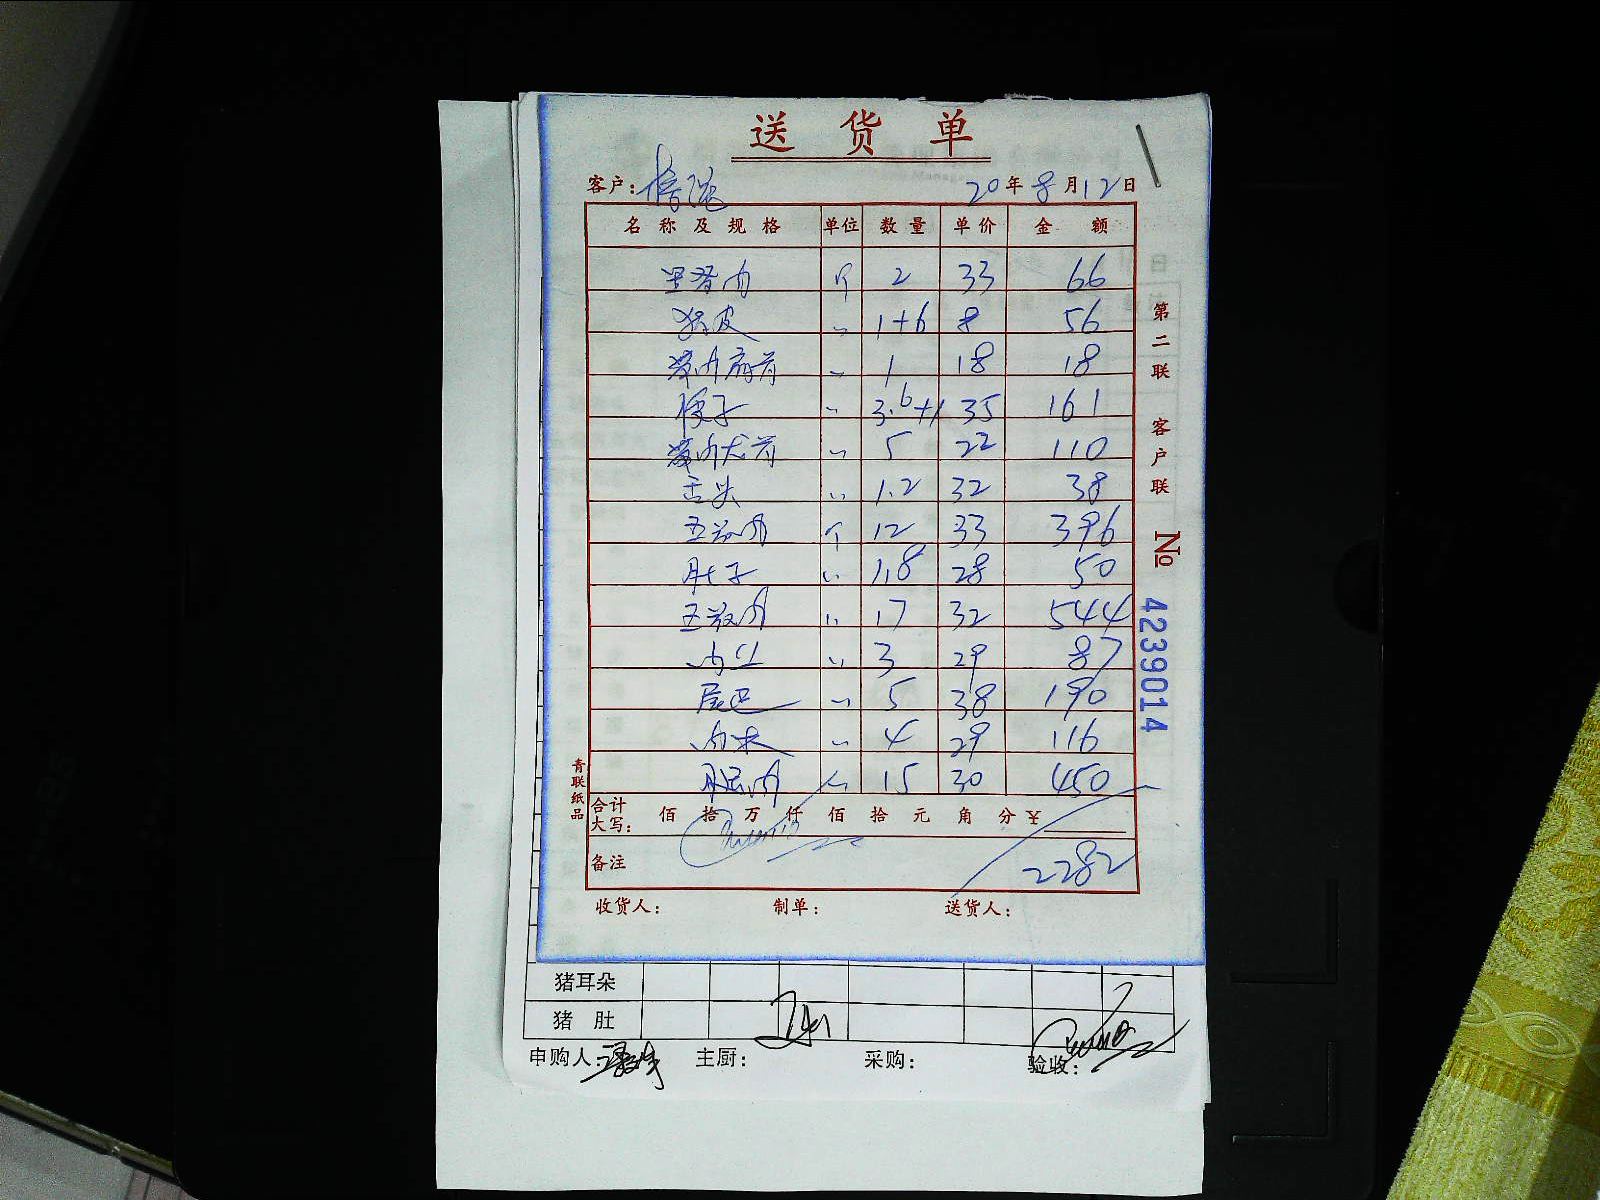 送货单
客户： 20年8月12日
名称及规格 单位 数量 单价 金额
里脊肉 斤 2 33 66
猪皮 〃 1+6 8 56
带肉扇骨 〃 1 18 18
腰子 〃 3.6+1 35 161
带肉尤骨 〃 5 22 110
舌头 〃 1.2 32 38
五花肉 斤 12 33 396
肚子 〃 1.8 28 50
五花肉 〃 17 32 544
肉丝 〃 3 29 87
尾巴 〃 5 38 190
肉末 〃 4 29 116
腿肉 〃 15 30 450
合计大写： 佰拾万仟佰拾元角分 ¥
备注 2282
收货人： 制单： 送货人：
青联纸品
第二联 客户联
No 4239014
猪耳朵
猪肚
申购人： 主厨： 采购： 验收：